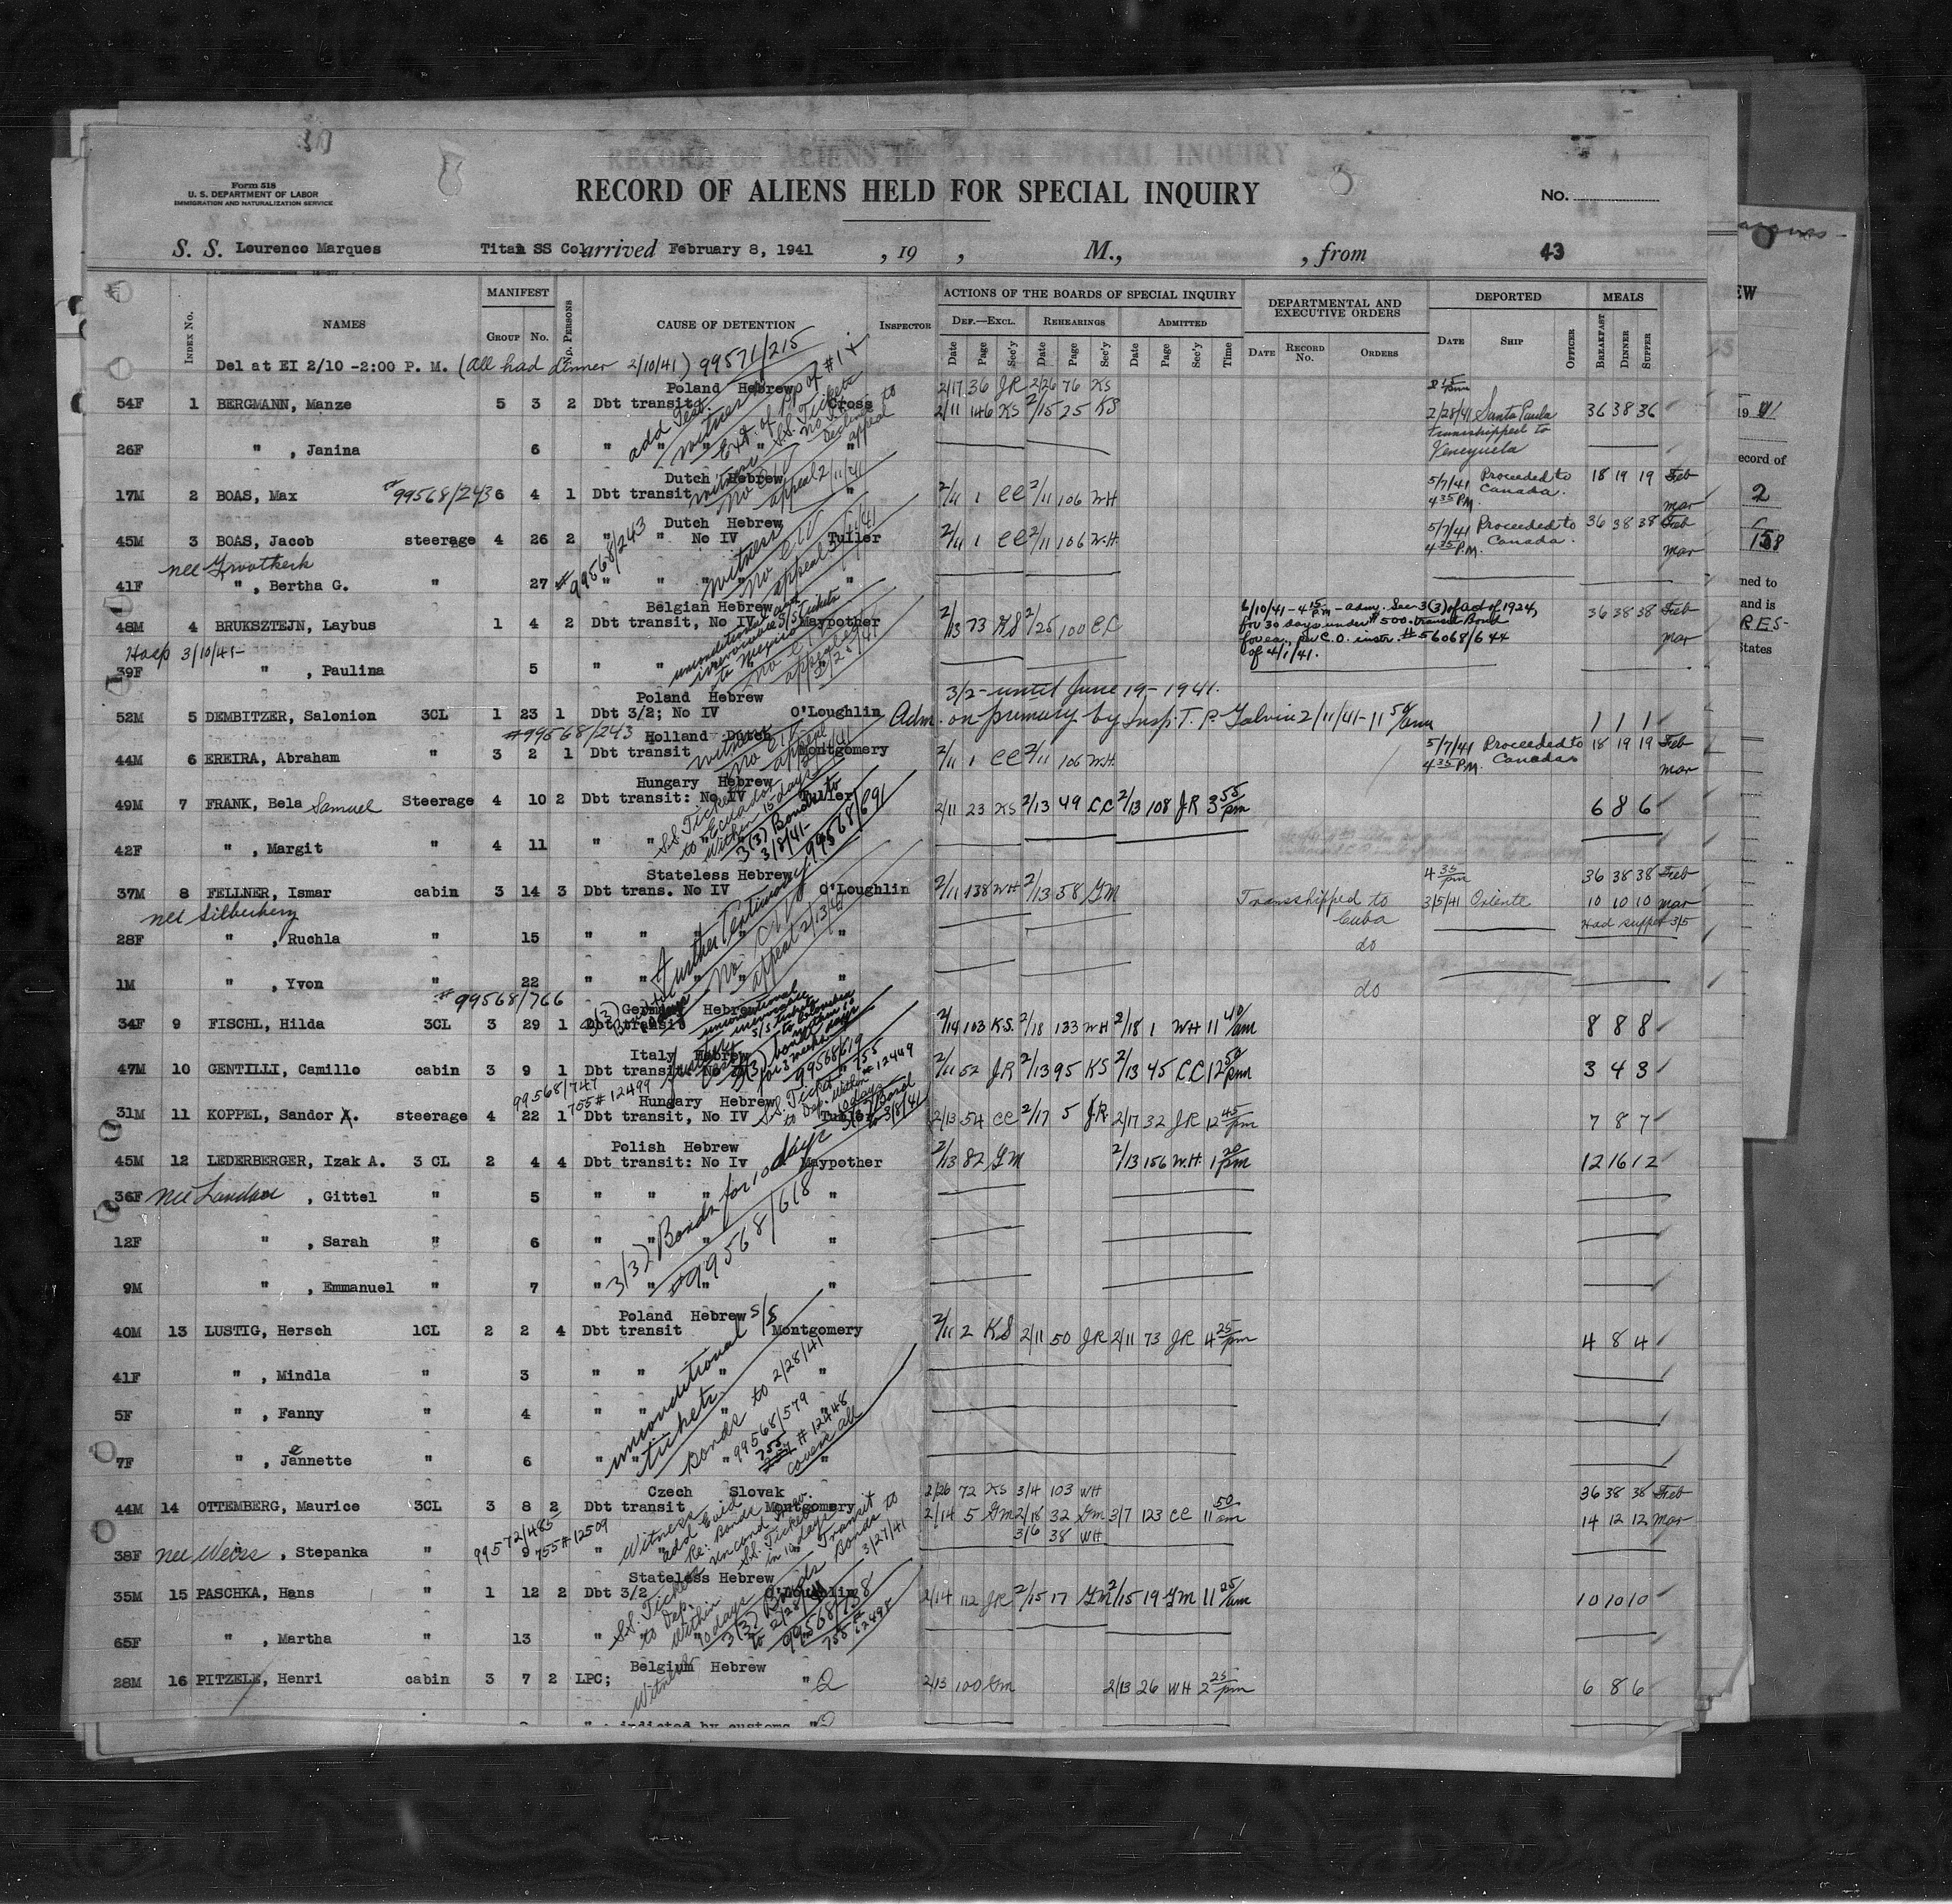 Form 518
U. S. DEPARTMENT OF LABOR
IMMIGRATION AND NATURALIZATION SERVICE
RECORD OF ALIENS HELD FOR SPECIAL INQUIRY
No.
S. S. Lourenco Marques Titan SS Co arrived February 8, 1941 , 19 , M., , from 43
INDEX No. NAMES MANIFEST GROUP No. No. PERSONS CAUSE OF DETENTION INSPECTOR ACTIONS OF THE BOARDS OF SPECIAL INQUIRY DEF.—EXCL. REHEARINGS ADMITTED DEPARTMENTAL AND EXECUTIVE ORDERS DEPORTED MEALS
Date Page Sec'y Date Page Sec'y Date Page Sec'y Time DATE RECORD No. ORDERS DATE SHIP OFFICER BREAKFAST DINNER SUPPER
Del at EI 2/10 -2:00 P. M. (All had dinner 2/10/41) 99571/215
Poland Hebrew 2/17 36 JR 2/26 76 KS
54F 1 BERGMANN, Manze 5 3 2 Dbt transit Cross 2/11 146 KS 2/15 25 KS 2/28/41 Santa Paula 36 38 36
transshipped to
26F " , Janina 6 " " " Venezuela
Dutch Hebrew
17M 2 BOAS, Max 99568/243 6 4 1 Dbt transit " 2/11 1 CC 2/11 106 WH 5/7/41 Proceeded to 18 19 19 Feb
4 35 P.M. Canada. Mar
Dutch Hebrew
45M 3 BOAS, Jacob steerage 4 26 2 " " No IV Tuller 2/11 1 CC 2/11 106 W.H. 5/7/41 Proceeded to 36 38 38 Feb
4 35 P.M. Canada. Mar
nee Grootkerk
41F " , Bertha G. " 27 #99568/243 " " " "
Witness No IV
Belgian Hebrew
48M 4 BRUKSZTEJN, Laybus 1 4 2 Dbt transit, No IV Maypother 2/13 73 KS 2/25 100 CC 36 38 38 Feb
Mar
6/10/41 - 4 15 P.M. - adm. Sec 3(3) of act of 1924,
for 30 days under $500. transit Bond
for ea., per C.O. instr. #56068/644
of 4/1/41.
Hosp 3/10/41-
39F " , Paulina 5 " "
unconditional and irrevocable S/S tickets to Mexico
Poland Hebrew 3/2 - until June 19 - 1941.
52M 5 DEMBITZER, Salonion 3CL 1 23 1 Dbt 3/2; No IV O'Loughlin Adm. on primary by Insp. T. P. Galvin 2/11/41 - 11 50 am 1 1 1
#99568/243 Holland Dutch
44M 6 EREIRA, Abraham " 3 2 1 Dbt transit Montgomery 2/11 1 CC 2/11 106 W.H. 5/7/41 Proceeded to 18 19 19 Feb
4 35 P.M. Canada Mar
Hungary Hebrew
49M 7 FRANK, Bela Samuel Steerage 4 10 2 Dbt transit: No IV Tuller 2/11 23 KS 2/13 49 CC 2/13 108 JR 3 55 pm 6 8 6
42F " , Margit " 4 11 " "
S.S. Tickets to Ecuador within 15 days 3(3) Bonds to 3/8/41-
Stateless Hebrew 99568/691
37M 8 FELLNER, Ismar cabin 3 14 3 Dbt trans. No IV O'Loughlin 2/11 138 WH 2/13 58 GM 4 35 pm 36 38 38 Feb
Transshipped to Cuba 3/5/41 Oriente 10 10 10 Mar
Had supper 3/5
nee Silberberg
28F " , Ruchla " 15 " " " " do
Further Testimony No IV appeal 2/13/41
1M " , Yvon " 22 " " " " do
#99568/766 Germany Hebrew
34F 9 FISCHL, Hilda 3CL 3 29 1 Dbt transit 2/14 103 KS. 2/18 133 WH 2/18 1 WH 11 40 am 8 8 8
Italy Hebrew
47M 10 GENTILLI, Camillo cabin 3 9 1 Dbt transit No IV 2/11 52 JR 2/13 95 KS 2/13 45 CC 12 50 pm 3 4 3
99568/747 755#12499 Hungary Hebrew
31M 11 KOPPEL, Sandor A. steerage 4 22 1 Dbt transit, No IV Tuller 2/13 54 CC 2/17 5 JR 2/17 32 JR 12 45 pm 7 8 7
Polish Hebrew
45M 12 LEDERBERGER, Izak A. 3 CL 2 4 4 Dbt transit: No Iv Maypother 2/13 82 GM 2/13 156 W.H. 1 20 pm 12 16 12
36F nee Landau , Gittel " 5 " " " "
12F " , Sarah " 6 " " " "
9M " , Emmanuel " 7 " " " "
3(3) Bonds for 10 days
#99568/618
Poland Hebrew
40M 13 LUSTIG, Hersch 1CL 2 2 4 Dbt transit Montgomery 2/11 2 KS 2/11 50 JR 2/11 73 JR 4 25 pm 4 8 4
41F " , Mindla " 3 " " " "
5F " , Fanny " 4 " " " "
7F " , Jannette " 6 " " " "
unconditional S/S tickets
Bonds to 2/28/41
99568/579
755 #12448
covers all
Czech Slovak 2/26 72 KS 3/4 103 WH 36 38 38 Feb
44M 14 OTTEMBERG, Maurice 3CL 3 8 2 Dbt transit Montgomery 2/14 5 GM 2/18 32 GM 3/7 123 CC 11 50 am 14 12 12 Mar
3/6 38 WH
38F nee Weiss , Stepanka " 99572/485 9 755#12509 " "
Witness add Evid Re: Bonds
Stateless Hebrew
35M 15 PASCHKA, Hans " 1 12 2 Dbt 3/2 O'Loughlin 2/14 112 JR 2/15 17 GM 2/15 19 GM 11 25 am 10 10 10
65F " , Martha " 13 "
S.S. Tickets to Dep. within 10 days 3(3) Bonds to 2/28/41 99568/738 755 # 12498
Belgium Hebrew
28M 16 PITZELE, Henri cabin 3 7 2 LPC; Witness " 2/13 100 GM 2/13 26 WH 2 25 pm 6 8 6
" ; indicted by customs "